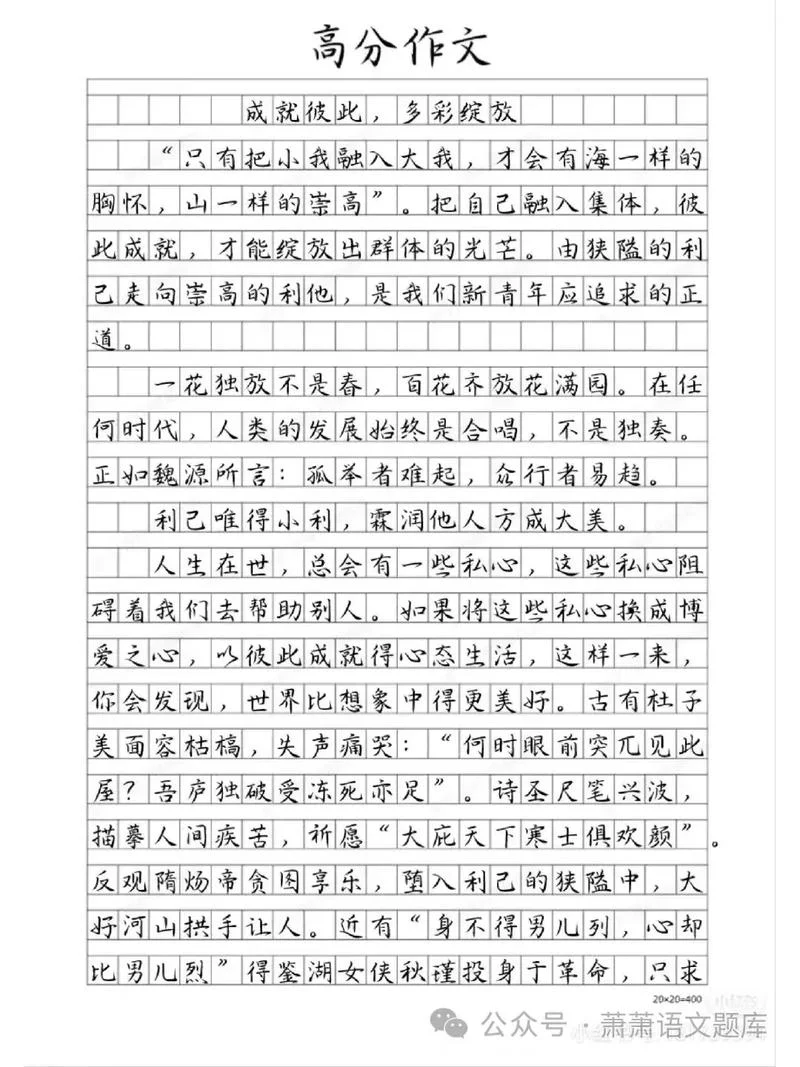 高分作文
成就彼此，多彩绽放
“只有把小我融入大我，才会有海一样的
胸怀，山一样的崇高”。把自己融入集体，彼
此成就，才能绽放出群体的光芒。由狭隘的利
己走向崇高的利他，是我们新青年应追求的正
道。
一花独放不是春，百花齐放花满园。在任
何时代，人类的发展始终是合唱，不是独奏。
正如魏源所言：孤举者难起，众行者易趋。
利己唯得小利，霖润他人方成大美。
人生在世，总会有一些私心，这些私心阻
碍着我们去帮助别人。如果将这些私心换成博
爱之心，以彼此成就得心态生活，这样一来，
你会发现，世界比想象中得更美好。古有杜子
美面容枯槁，失声痛哭：“何时眼前突兀见此
屋？吾庐独破受冻死亦足”。诗圣尺笔兴波，
描摹人间疾苦，祈愿“大庇天下寒士俱欢颜”。
反观隋炀帝贪图享乐，堕入利己的狭隘中，大
好河山拱手让人。近有“身不得男儿列，心却
比男儿烈”得鉴湖女侠秋瑾投身于革命，只求
20×20=400
公众号·萧萧语文题库